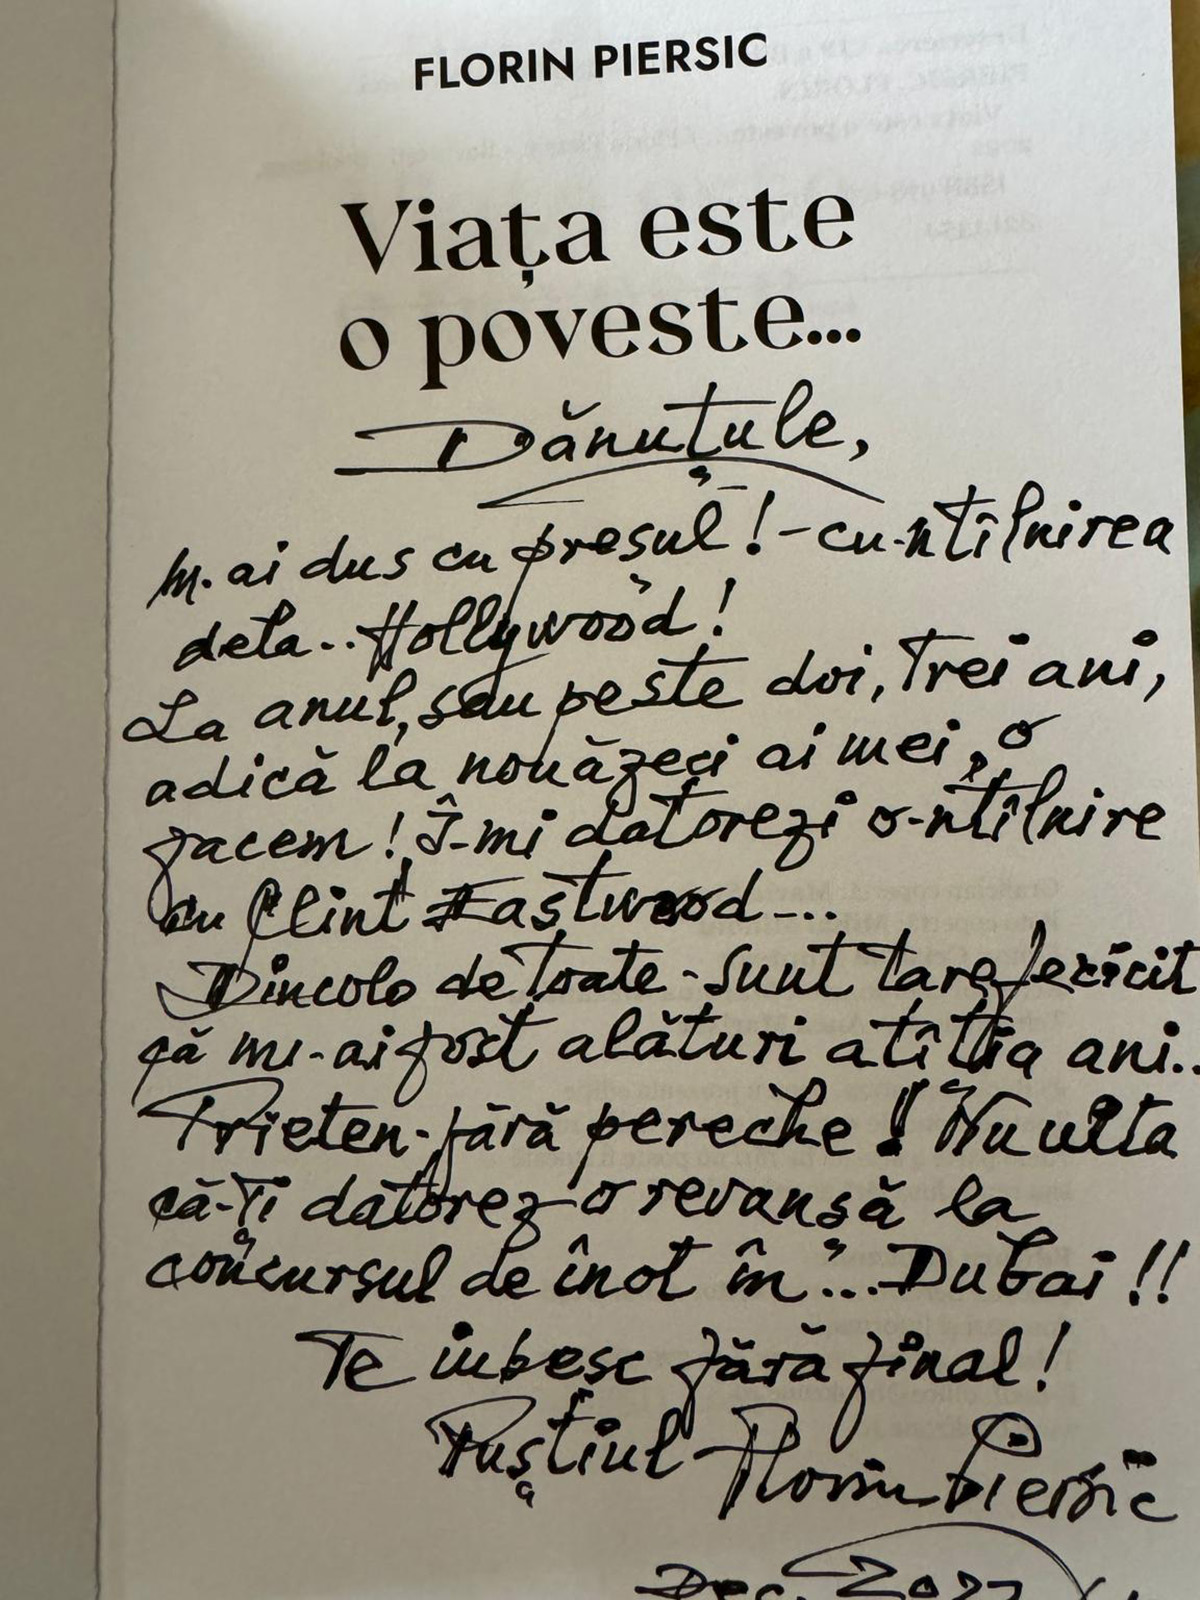 FLORIN PIERSIC
Viața este
o poveste...
Dănuțule,
M-ai dus cu preșul! - cu-ntîlnirea
dela.. Hollywood!
La anul, sau peste doi, trei ani,
adică la nouăzeci ai mei, o
facem! Î-mi datorezi o-ntîlnire
cu Clint Eastwood...
Dincolo de toate - sunt tare fericit
că mi-ai fost alături atîtia ani..
Prieten - fără pereche! Nu uita
că-ți datorez o revanșă la
concursul de înot în... Dubai!!
Te iubesc fără final!
Puștiul Florin Piersic
Dec.